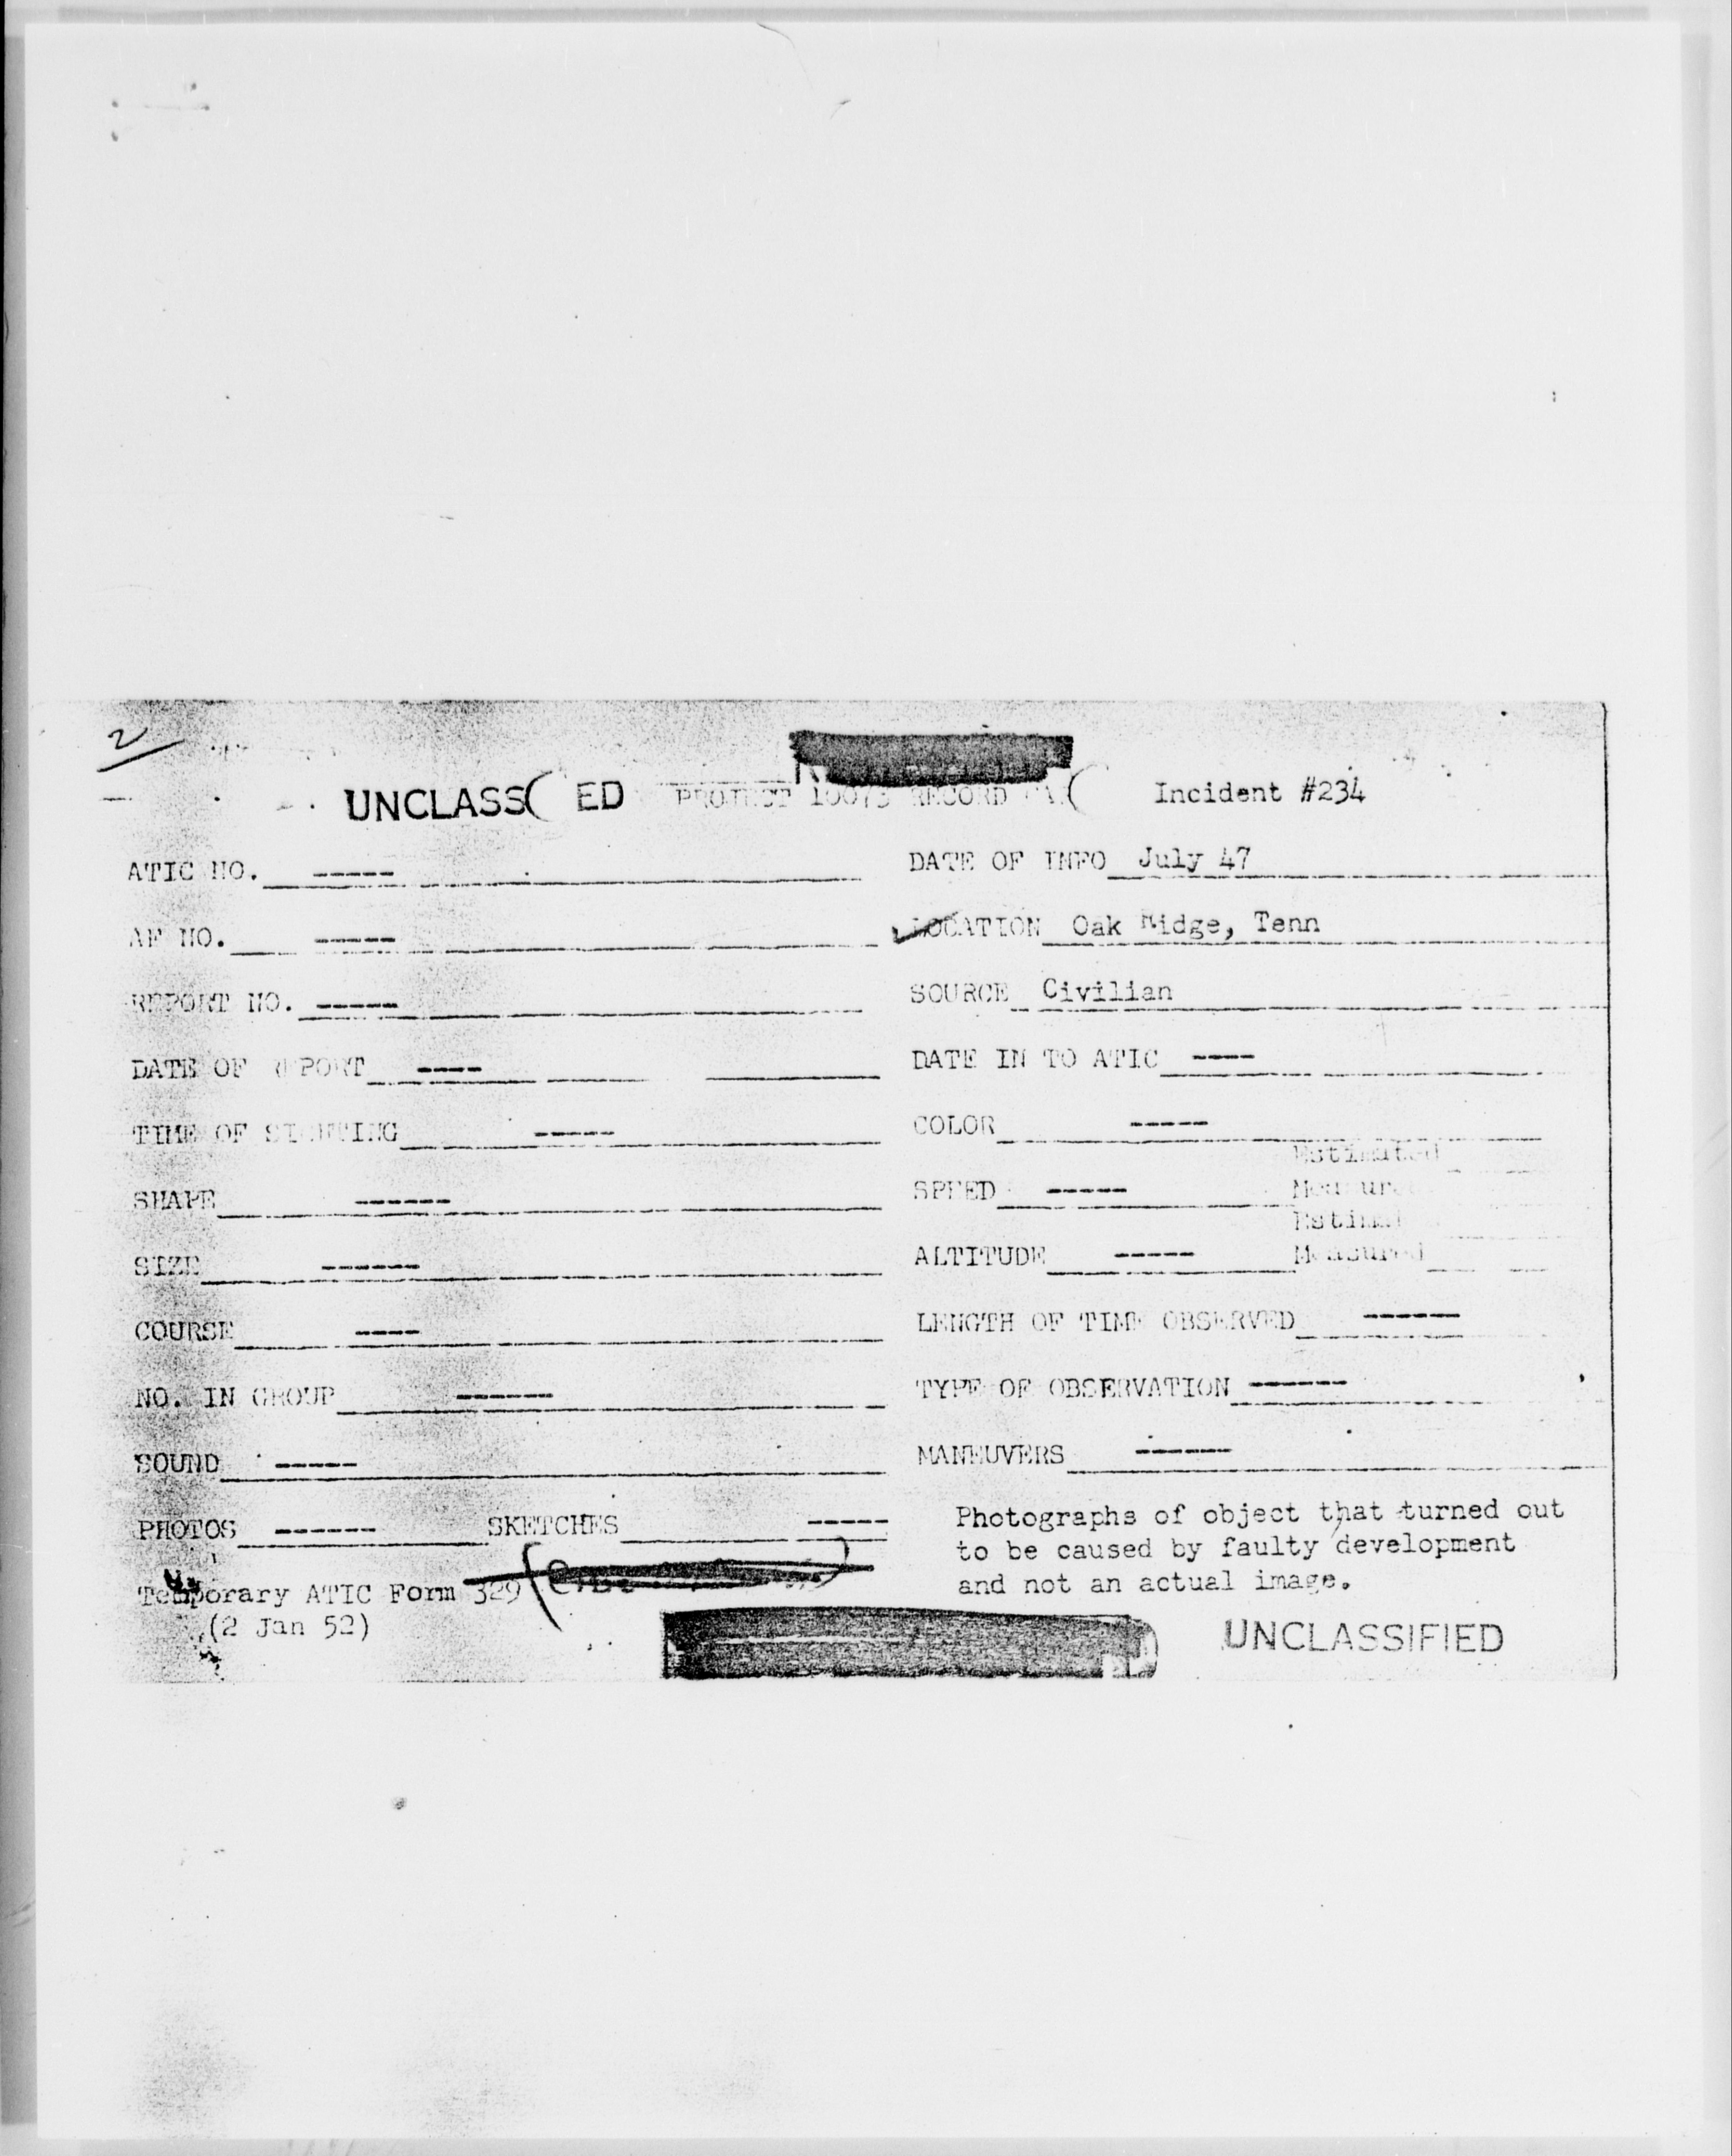 2
UNCLASS ED PROJECT 10073 RECORD Incident #234
ATIC NO. ----- DATE OF INFO July 47
AF NO. ----- LOCATION Oak Ridge, Tenn
REPORT NO. ----- SOURCE Civilian
DATE OF REPORT ---- DATE IN TO ATIC ----
TIME OF SIGHTING ----- COLOR -----
Estimated
SHAPE ------ SPEED ----- Measured
Estimated
SIZE ------ ALTITUDE ----- Measured
COURSE ---- LENGTH OF TIME OBSERVED ------
NO. IN GROUP ------ TYPE OF OBSERVATION ------
SOUND ----- MANEUVERS ------
PHOTOS ------ SKETCHES -----
Photographs of object that turned out
to be caused by faulty development
and not an actual image.
Temporary ATIC Form 329
(2 Jan 52)
UNCLASSIFIED